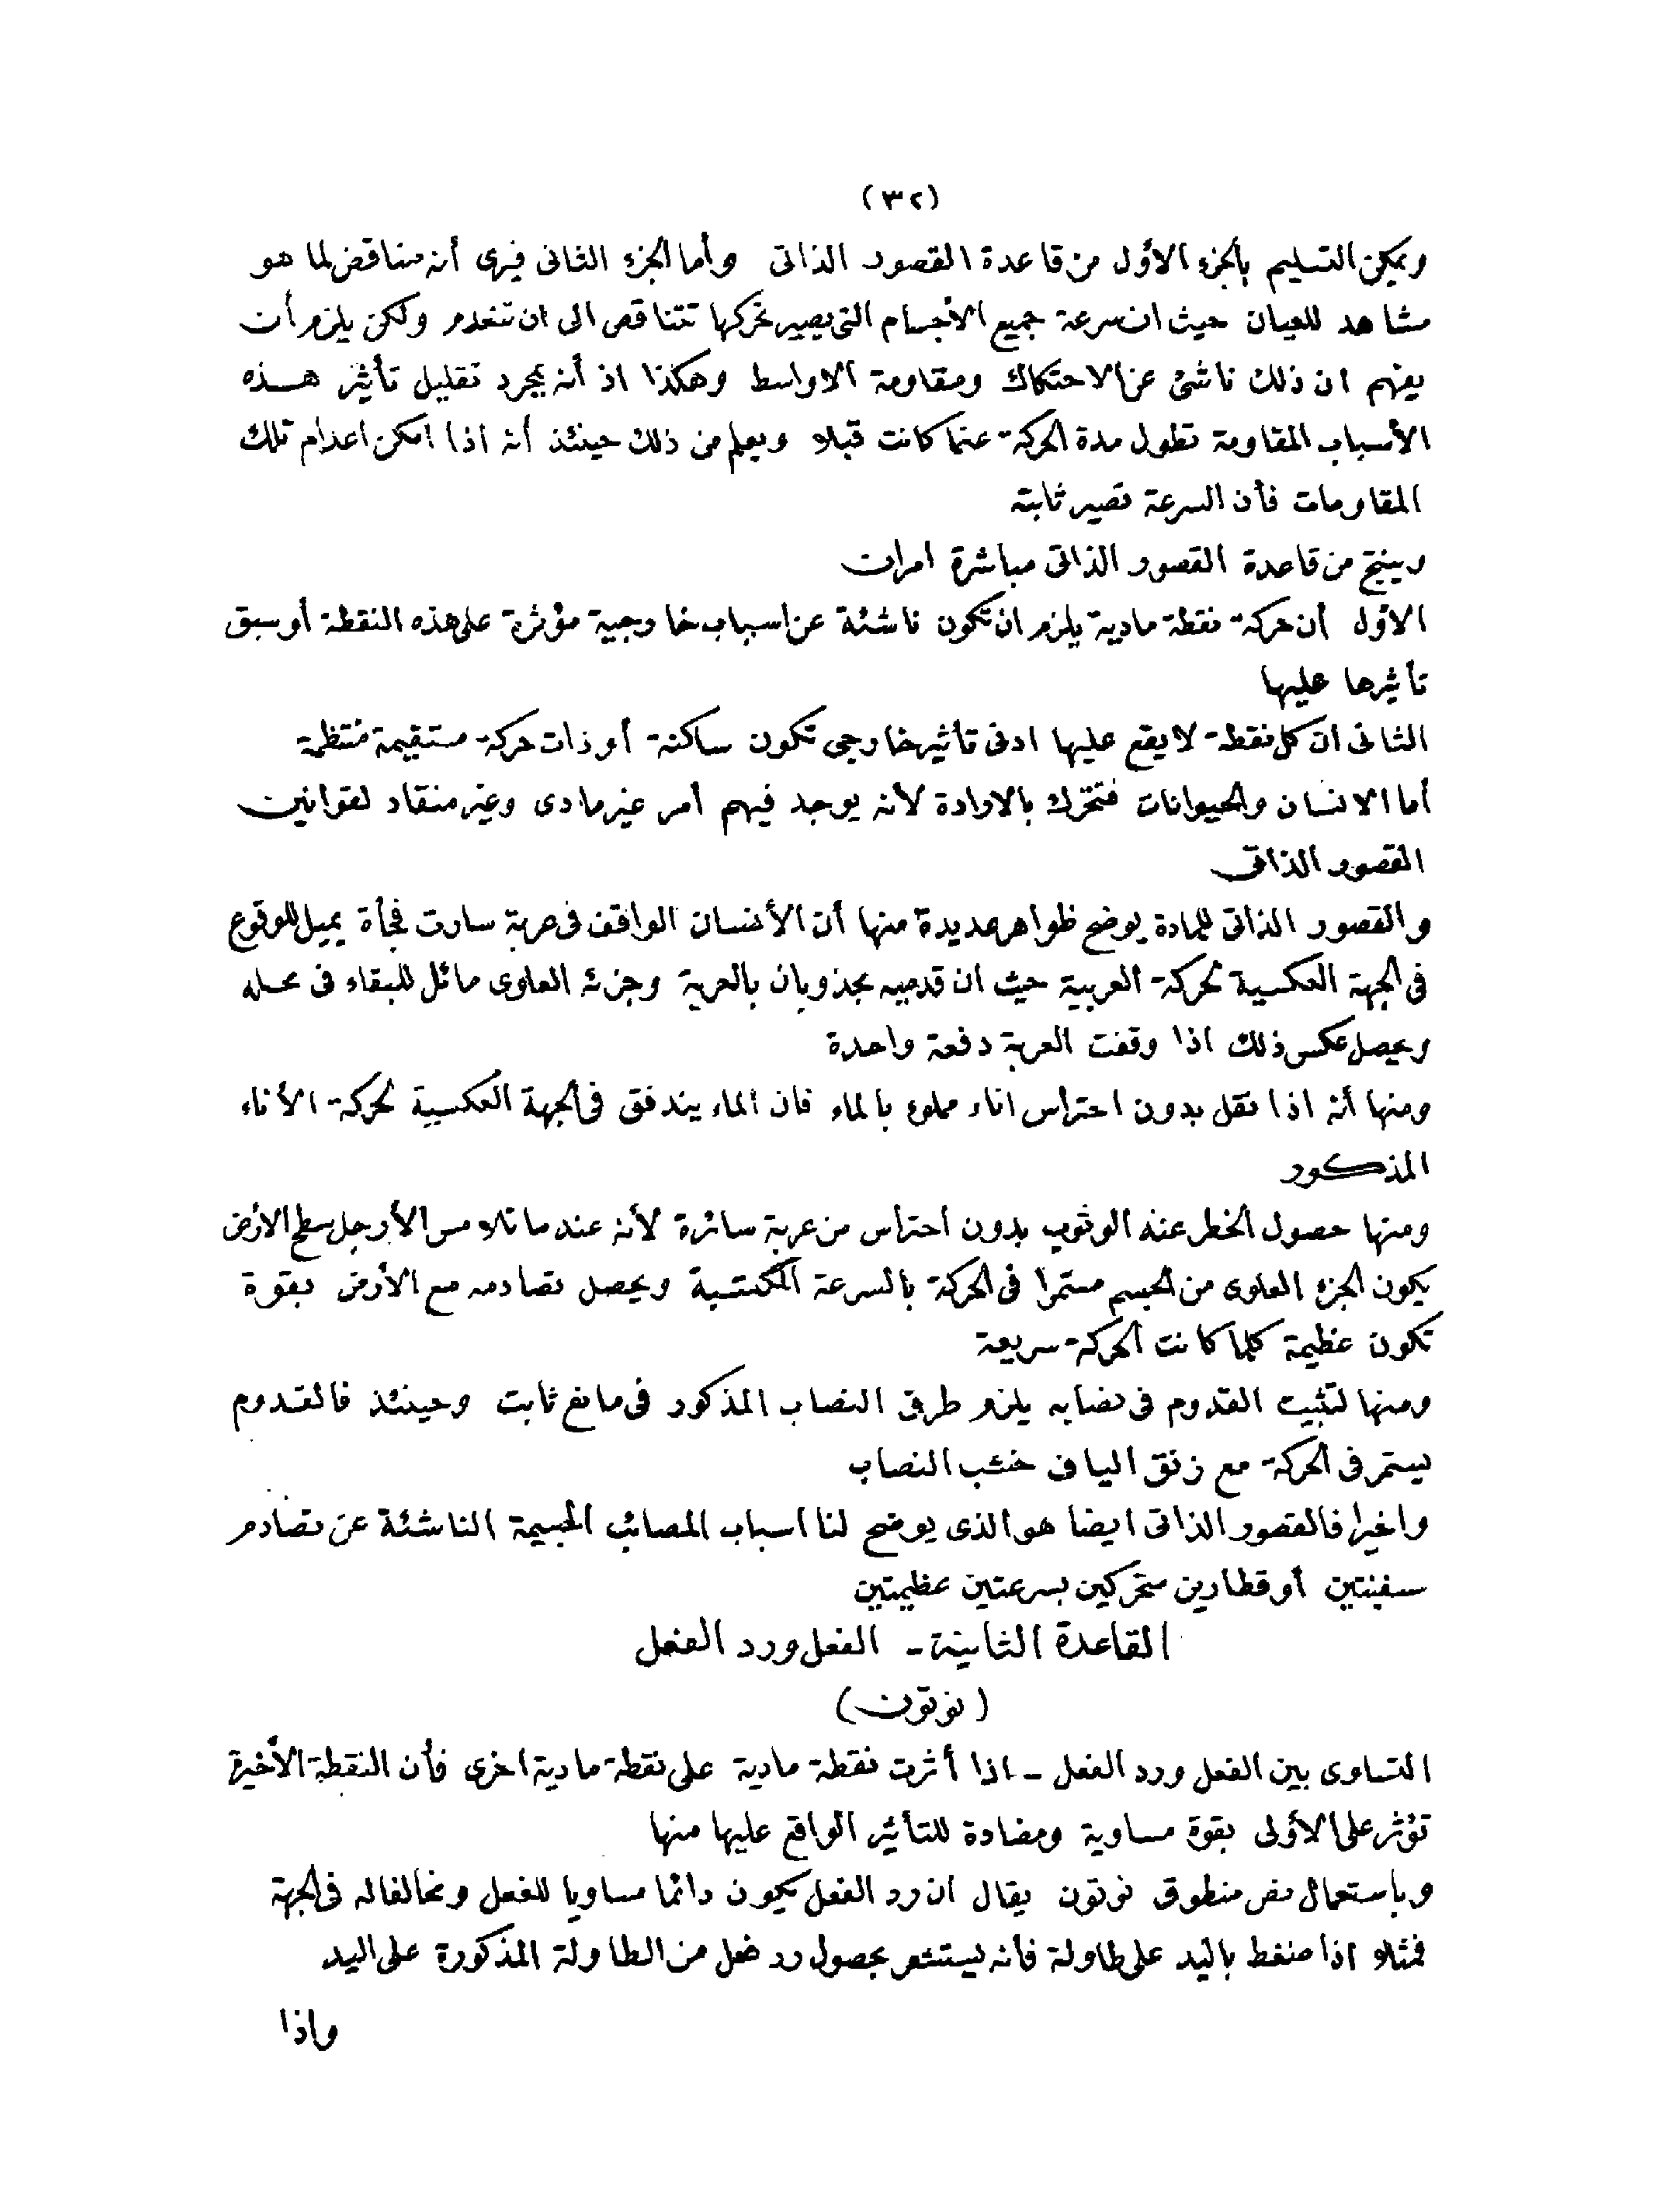 (٣٢)
ويمكن التسليم بالجزء الأول من قاعدة القصور الذاتى وأما الجزء الثانى فيرى أنه مناقض لما هو
مشاهد للعيان حيث ان سرعة جميع الأجسام التى يصير تحركها تتناقص الى ان تنعدم ولكن يلزم أن
يفهم ان ذلك ناشئ عن الاحتكاك ومقاومة الاواسط وهكذا اذ أنه بمجرد تقليل تأثير هذه
الأسباب المقاومة تطول مدة الحركة عما كانت قبلا ويعلم من ذلك حينئذ أنه اذا امكن اعدام تلك
المقاومات فأن السرعة تصير ثابتة
وينتج من قاعدة القصور الذاتى مباشرة امران
الاول أن حركة نقطة مادية يلزم ان تكون ناشئة عن اسباب خارجية مؤثرة على هذه النقطة أو سبق
تأثيرها عليها
الثانى ان كل نقطة لا يقع عليها ادنى تأثير خارجى تكون ساكنة أو ذات حركة مستقيمة منتظمة
أما الانسان والحيوانات فتتحرك بالارادة لأنه يوجد فيهم أمر غير مادى وغير منقاد لقوانين
القصور الذاتى
والقصور الذاتى للمادة يوضح ظواهر عديدة منها أن الأنسان الواقف فى عربة سارت فجأة يميل للوقوع
فى الجهة العكسية لحركة العربية حيث ان قدميه مجذوبان بالعربة وجزئه العلوى مائل للبقاء فى محله
ويحصل عكس ذلك اذا وقفت العربة دفعة واحدة
ومنها أنه اذا نقل بدون احتراس اناء مملوء بالماء فان الماء يندفق فى الجهة العكسية لحركة الأناء
المذكور
ومنها حصول الخطر عند الوثوب بدون احتراس من عربة سائرة لأنه عند ما تلامس الأرجل سطح الارض
يكون الجزء العلوى من الجسم مستمرا فى الحركة بالسرعة المكتسبة ويحصل تصادمه مع الأرض بقوة
تكون عظيمة كلما كانت الحركة سريعة
ومنها لتثبيت القدوم فى نصابه يلزم طرق النصاب المذكور فى مانع ثابت وحينئذ فالقدوم
يستمر فى الحركة مع زنق الياف خشب النصاب
واخيرا فالقصور الذاتى ايضا هو الذى يوضح لنا اسباب المصائب الجسيمة الناشئة عن تصادم
سفينتين أو قطارين متحركين بسرعتين عظيمتين
القاعدة الثانية - الفعل ورد الفعل
(نوتون)
التساوى بين الفعل ورد الفعل - اذا أثرت نقطة مادية على نقطة مادية اخرى فأن النقطة الأخيرة
تؤثر على الأولى بقوة مساوية ومضادة للتأثير الواقع عليها منها
وباستعمال نص منطوق نوتون يقال ان رد الفعل يكون دائما مساويا للفعل ومخالفا له فى الجهة
فمثلا اذا ضغط باليد على طاولة فأنه يستشعر بحصول رد فعل من الطاولة المذكورة على اليد
واذا